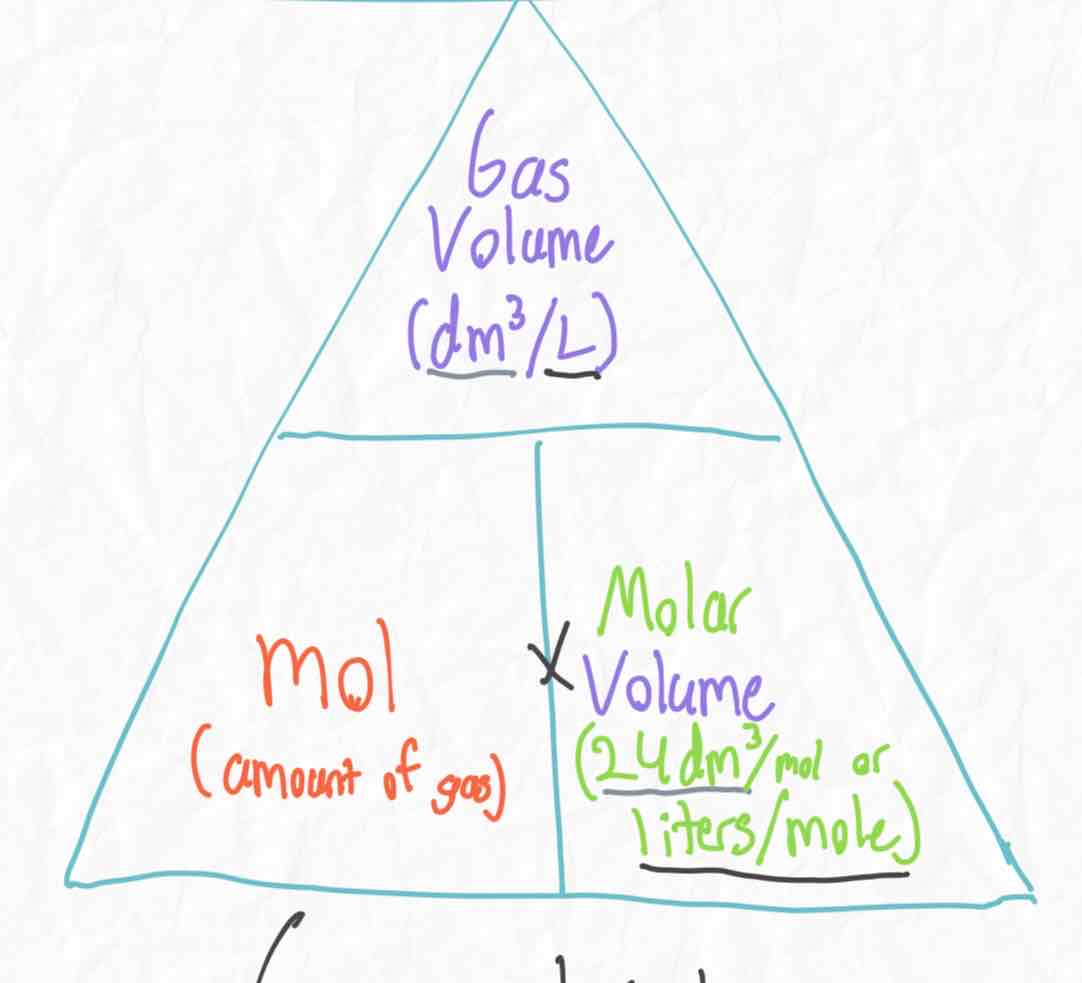 Gas
Volume
(dm³/L)
mol
(amount of gas)
X
Molar
Volume
(24dm³/mol or
liters/mole)